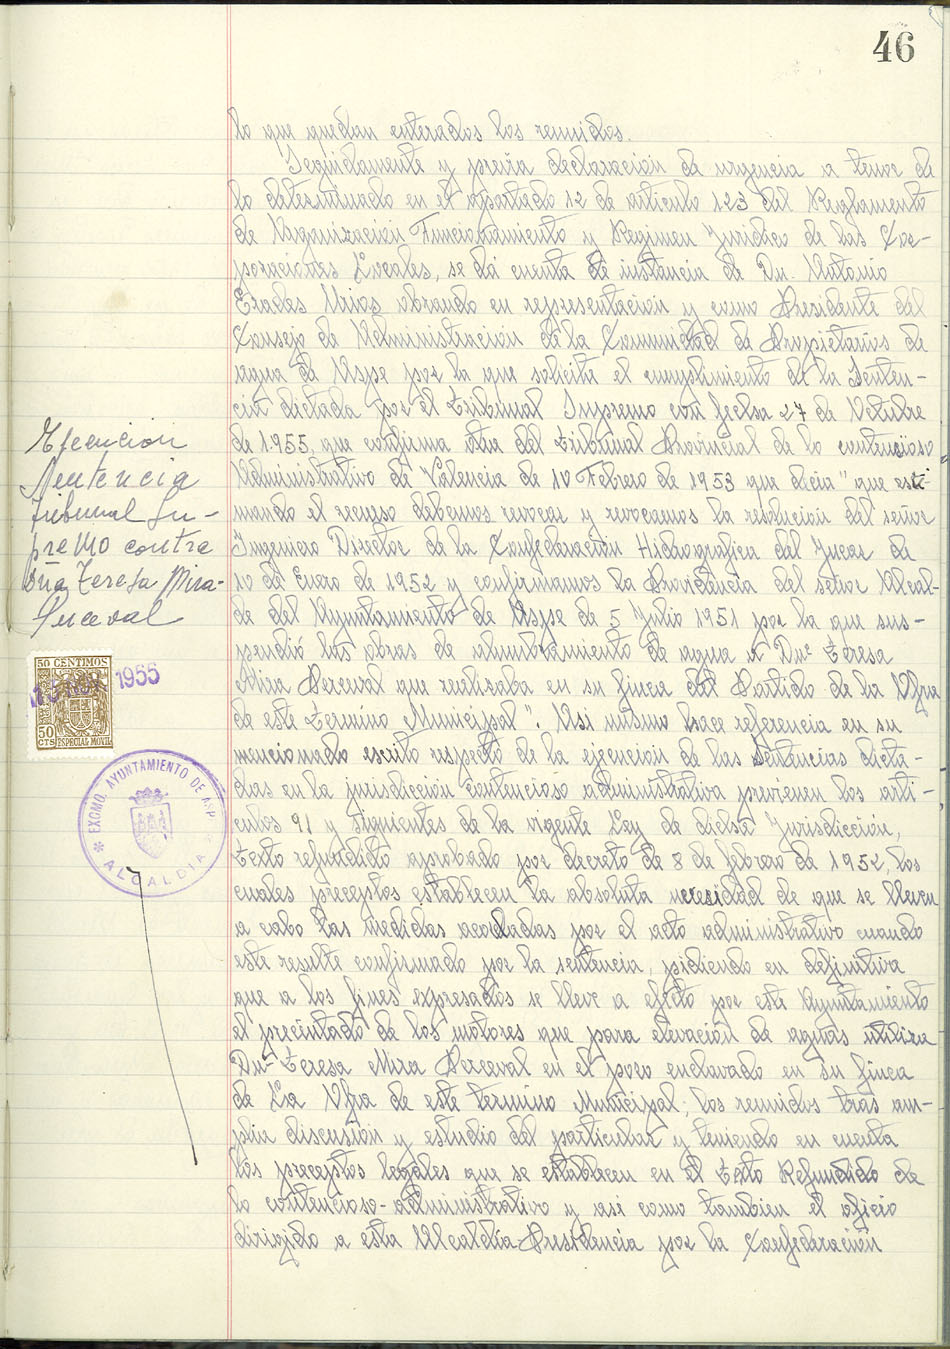 46
lo que quedan enterados los reunidos.
Seguidamente y previa declaración de urgencia a tenor de
lo determinado en el apartado 12 de articulo 123 del Reglamento
de Organización Funcionamiento y Regimen Juridico de las Cor-
poraciones Locales, se dá cuenta de instancia de Dn. Antonio
Erades Urios obrando en representación y como Presidente del
Consejo de Administracion de la Comunidad de Propietarios de
agua de Aspe por la que solicita el cumplimiento de la Senten-
cia dictada por el Tribunal Supremo con fecha 27 de Octubre
de 1955, que confirma otra del Tribunal Provincial de lo contencioso
Administrativo de Valencia de 10 Febrero de 1953 que dicia " que esti-
mando el recurso debemos revocar y revocamos la resolucion del señor
Ingeniero Director de la Confederación Hidrografica del Jucar de
10 de Enero de 1952 y confirmamos la Providencia del señor Alcal-
de del Ayuntamiento de Aspe de 5 Julio 1951 por la que sus-
pendió las obras de alumbramiento de agua a Dnª Teresa
Mira Perceval que realizaba en su finca del Partido de la Ofra
de este termino Municipal". Asi mismo hace referencia en su
mencionado escrito respecto de la ejecucion de las Sentencias dicta-
das en la jurisdicción contencioso administrativa previenen los arti-
culos 91 y siguientes de la vigente Ley de dicha Jurisdicción,
texto refundido aprobado por decreto de 8 de febrero de 1952, los
cuales preceptos establecen la absoluta necesidad de que se lleven
a cabo las medidas acordadas por el acto administrativo cuando
este resulte confirmado por la sentencia, pidiendo en definitiva
que a los fines expresados se lleve a efecto por este Ayuntamiento
el precintado de los motores que para elevación de aguas utiliza
Dnª Teresa Mira Perceval en el pozo enclavado en su finca
de La Ofra de este termino Municipal; los reunidos tras am-
plia discusion y estudio del particular y teniendo en cuenta
los preceptos legales que se establecen en el Texto Refundido de
lo contencioso-administrativo y asi como tambien el oficio
dirigido a esta Alcaldia-Presidencia por la Confederación
Ejecucion
Sentencia
Tribunal Su-
premo contra
Dña Teresa Mira-
Perceval
50 CENTIMOS
1955
50
CTS ESPECIAL MOVIL
EXCMO. AYUNTAMIENTO DE ASPE
* ALCALDIA *